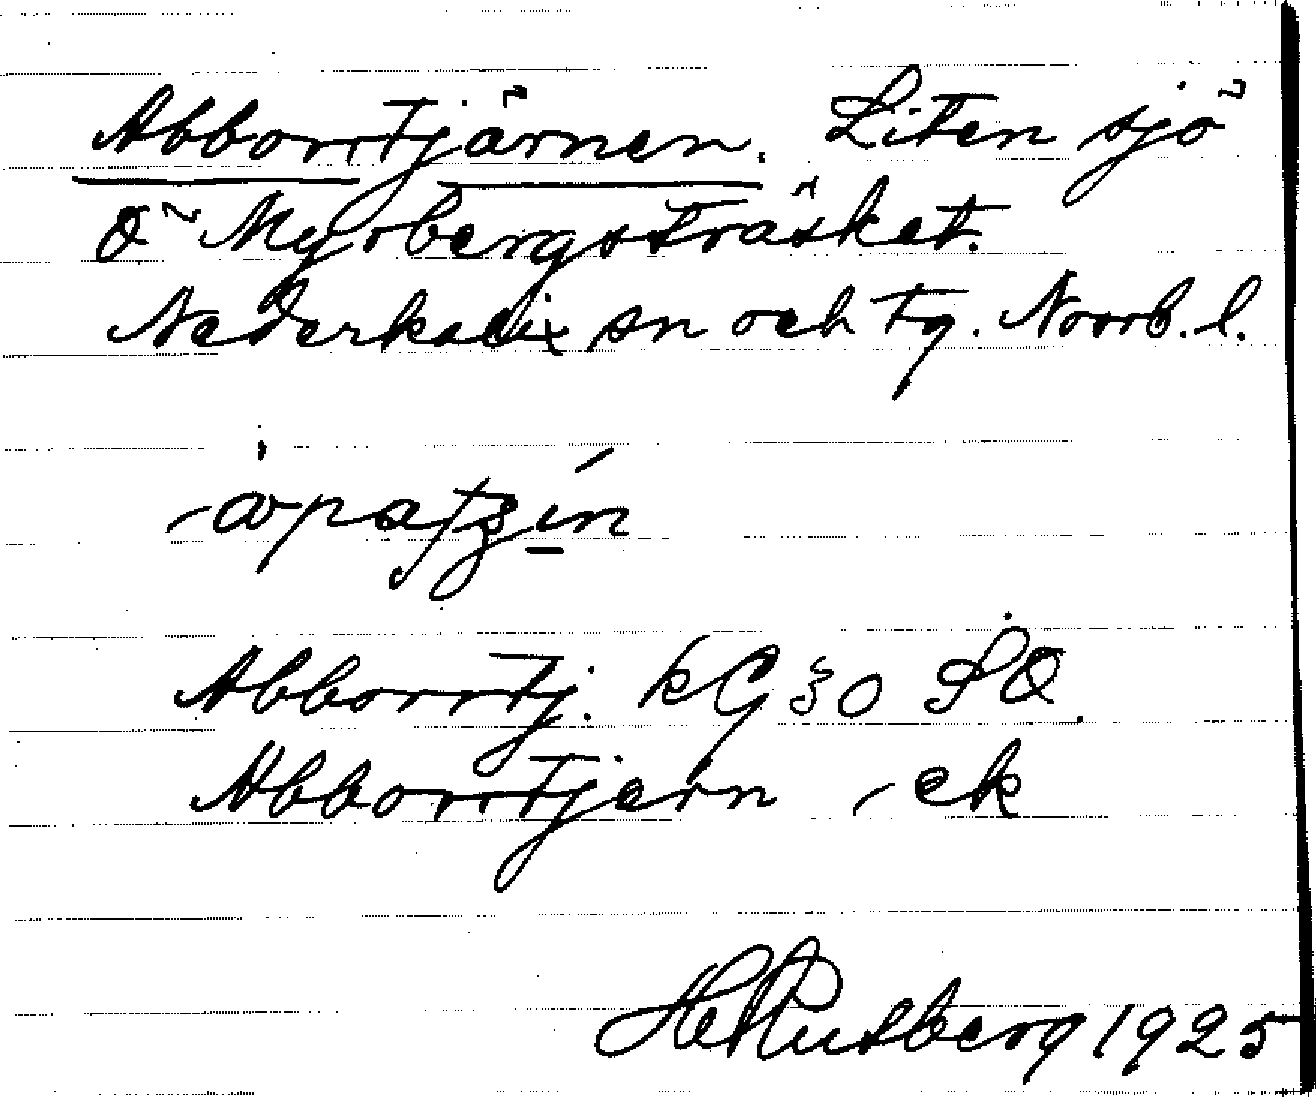 Abborrtjärnen. Liten sjö
Ö Myrbergsträsket.
Nederkalix sn och tg. Norrb. l.
Abborrtj. kG 30 SO
Abborrtjern - ek
1925